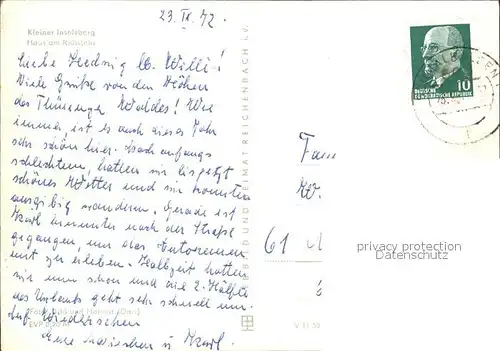 23. IX. 72.
Kleiner Inselsberg
Haus am Reitstein
Liebe Hedwig lb. Willi!
Viele Grüße von den Höhen
des Thüringer Waldes! Wie
immer, ist es auch dieses Jahr
sehr schön hier. Nach anfangs
schlechtem, hatten wir bis jetzt
schönes Wetter und wir konnten
ausgibig wandern. Gerade ist
Karl hinunter nach der Straße
gegangen, um das Autorennen
mit zu erleben. Halbzeit hatten
wir nun schon und die 2. Hälfte
des Urlaubs geht sehr schnell um.
Auf Wiedersehen
Eure u. Karl.
Foto: Bild und Heimat
EVP 0,20 M
BILD UND HEIMAT REICHENBACH i. V.
V 11 50
DEUTSCHE
DEMOKRATISCHE REPUBLIK
10
Fam
W.
61
privacy protection
Datenschutz